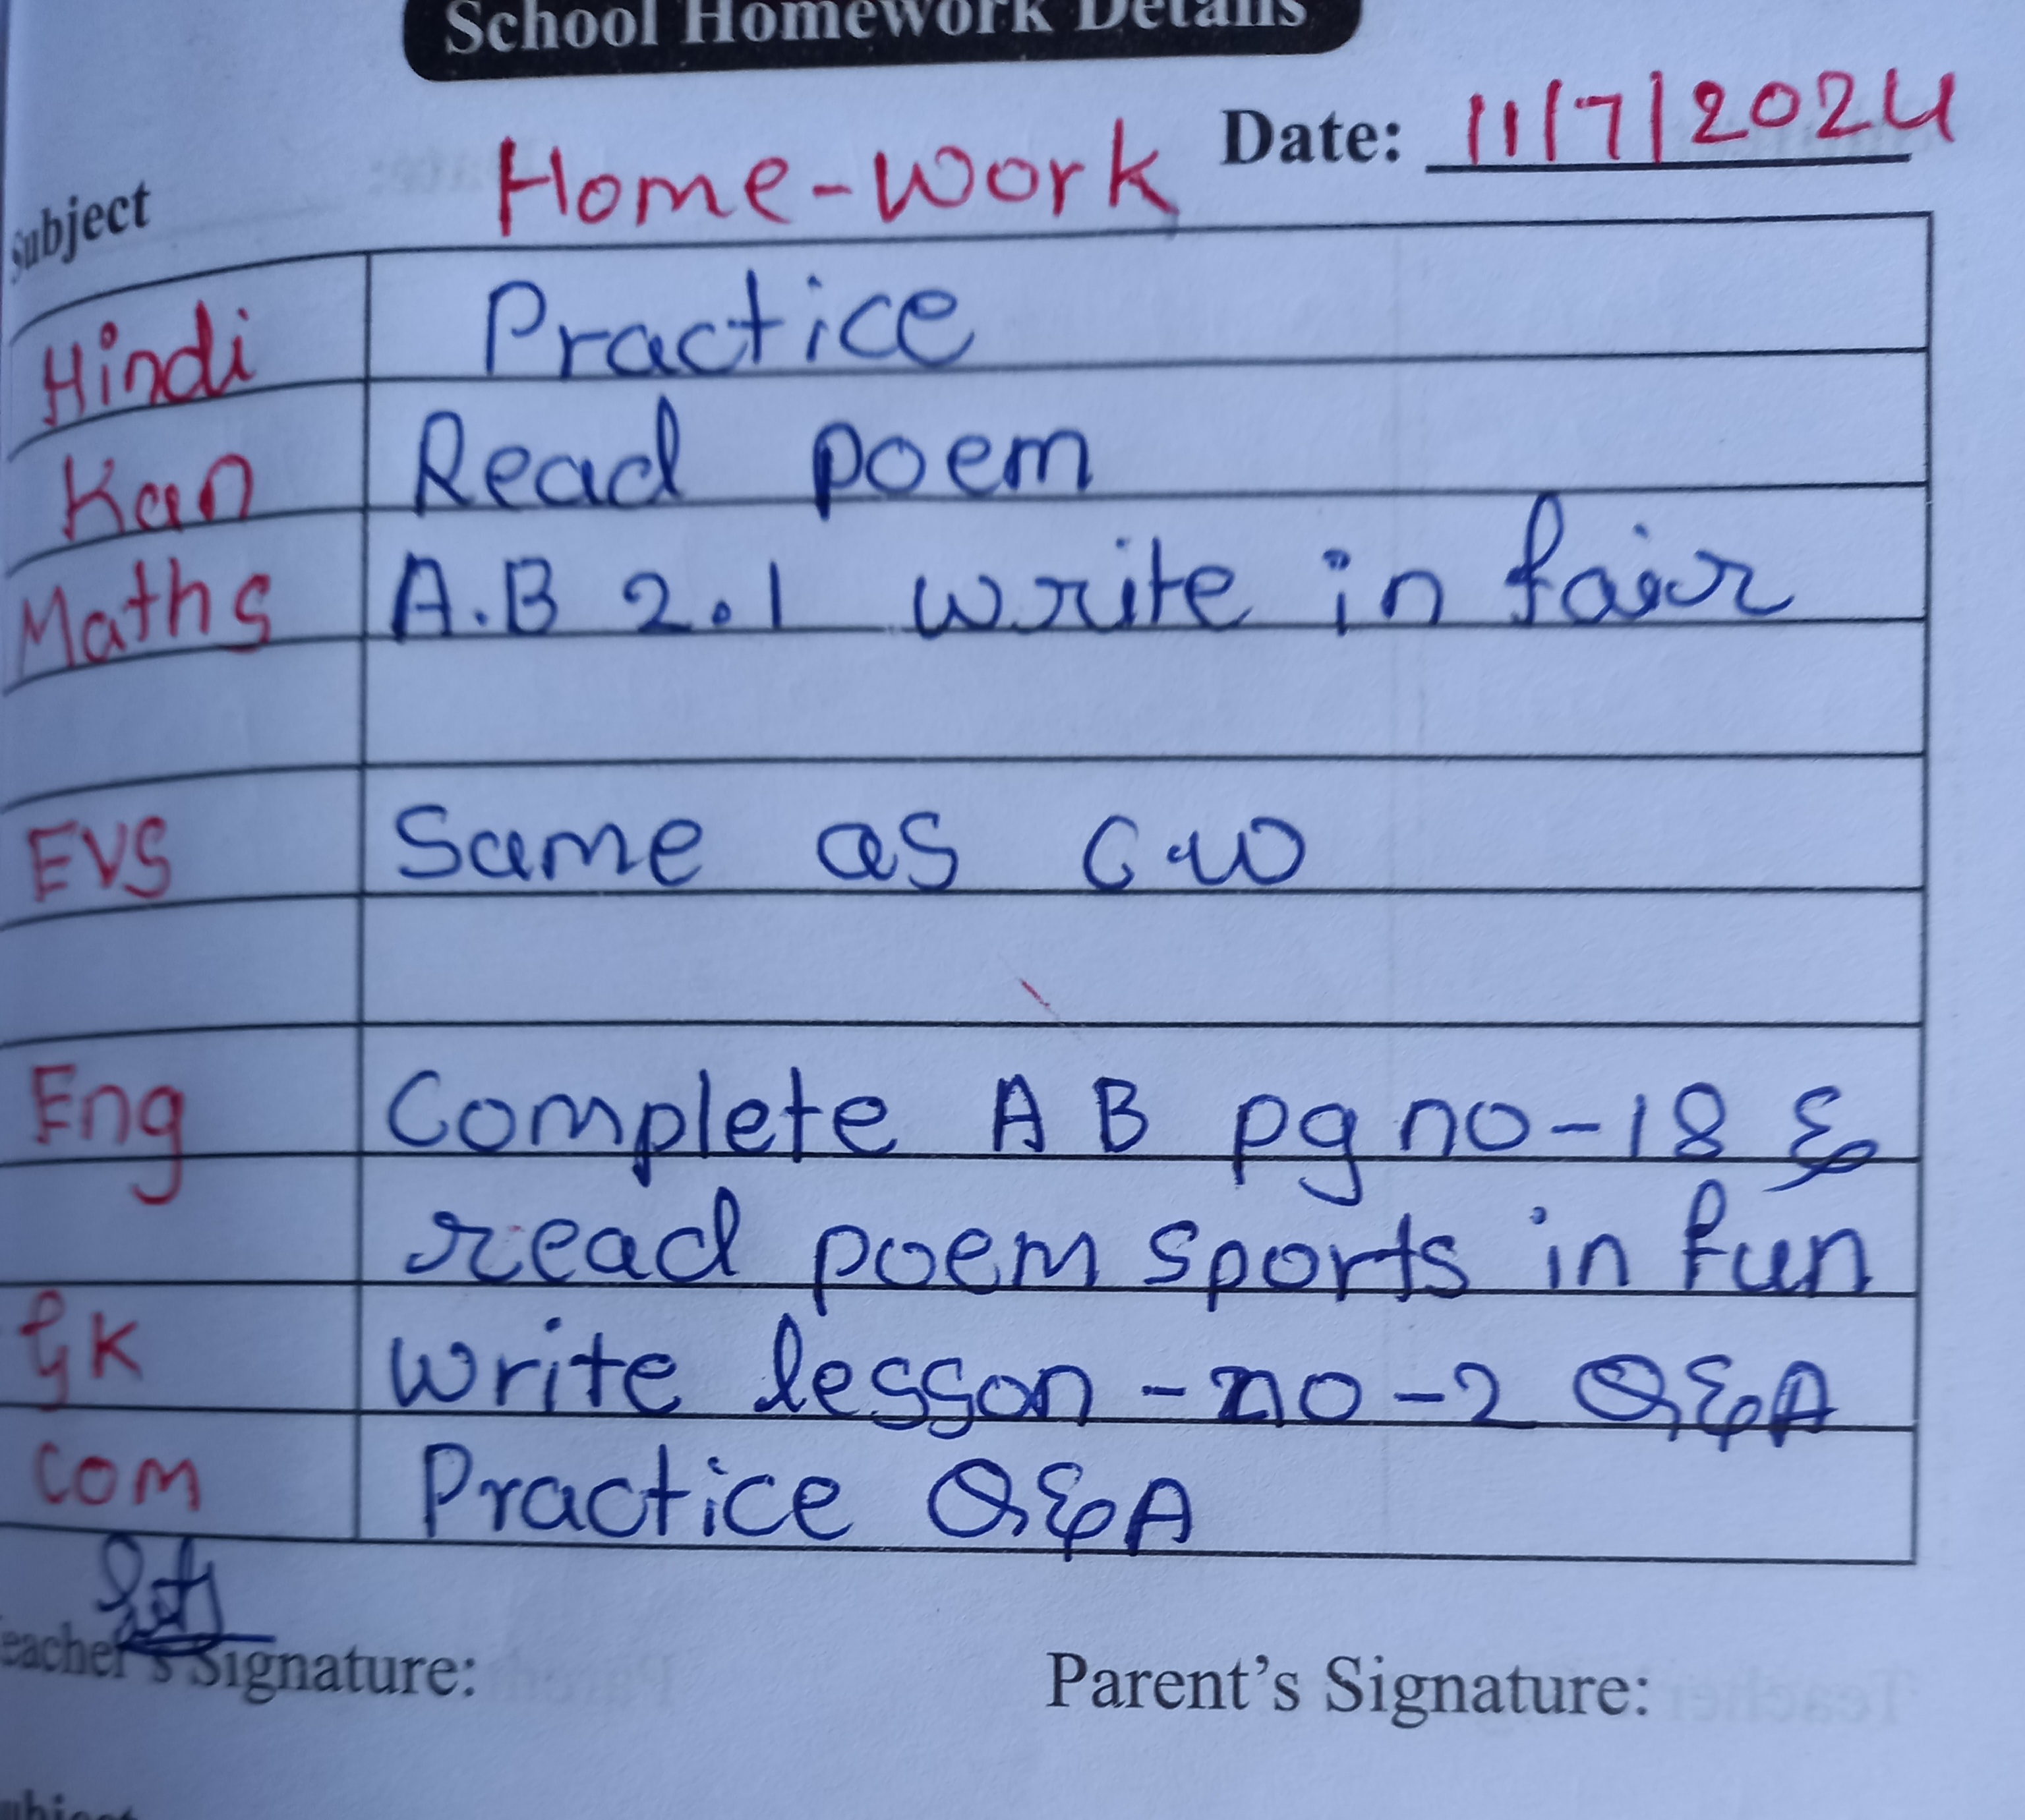 School Homework Details
Home-Work Date: 11/7/2024
Subject
Hindi Practice
Kan Read poem
Maths A.B 2.1 write in fair
EVS Same as C.W
Eng Complete A B pg no-18 &
read poem sports in fun
GK Write lesson-no-2 Q&A
Com Practice Q&A
Teacher's Signature: Parent's Signature: